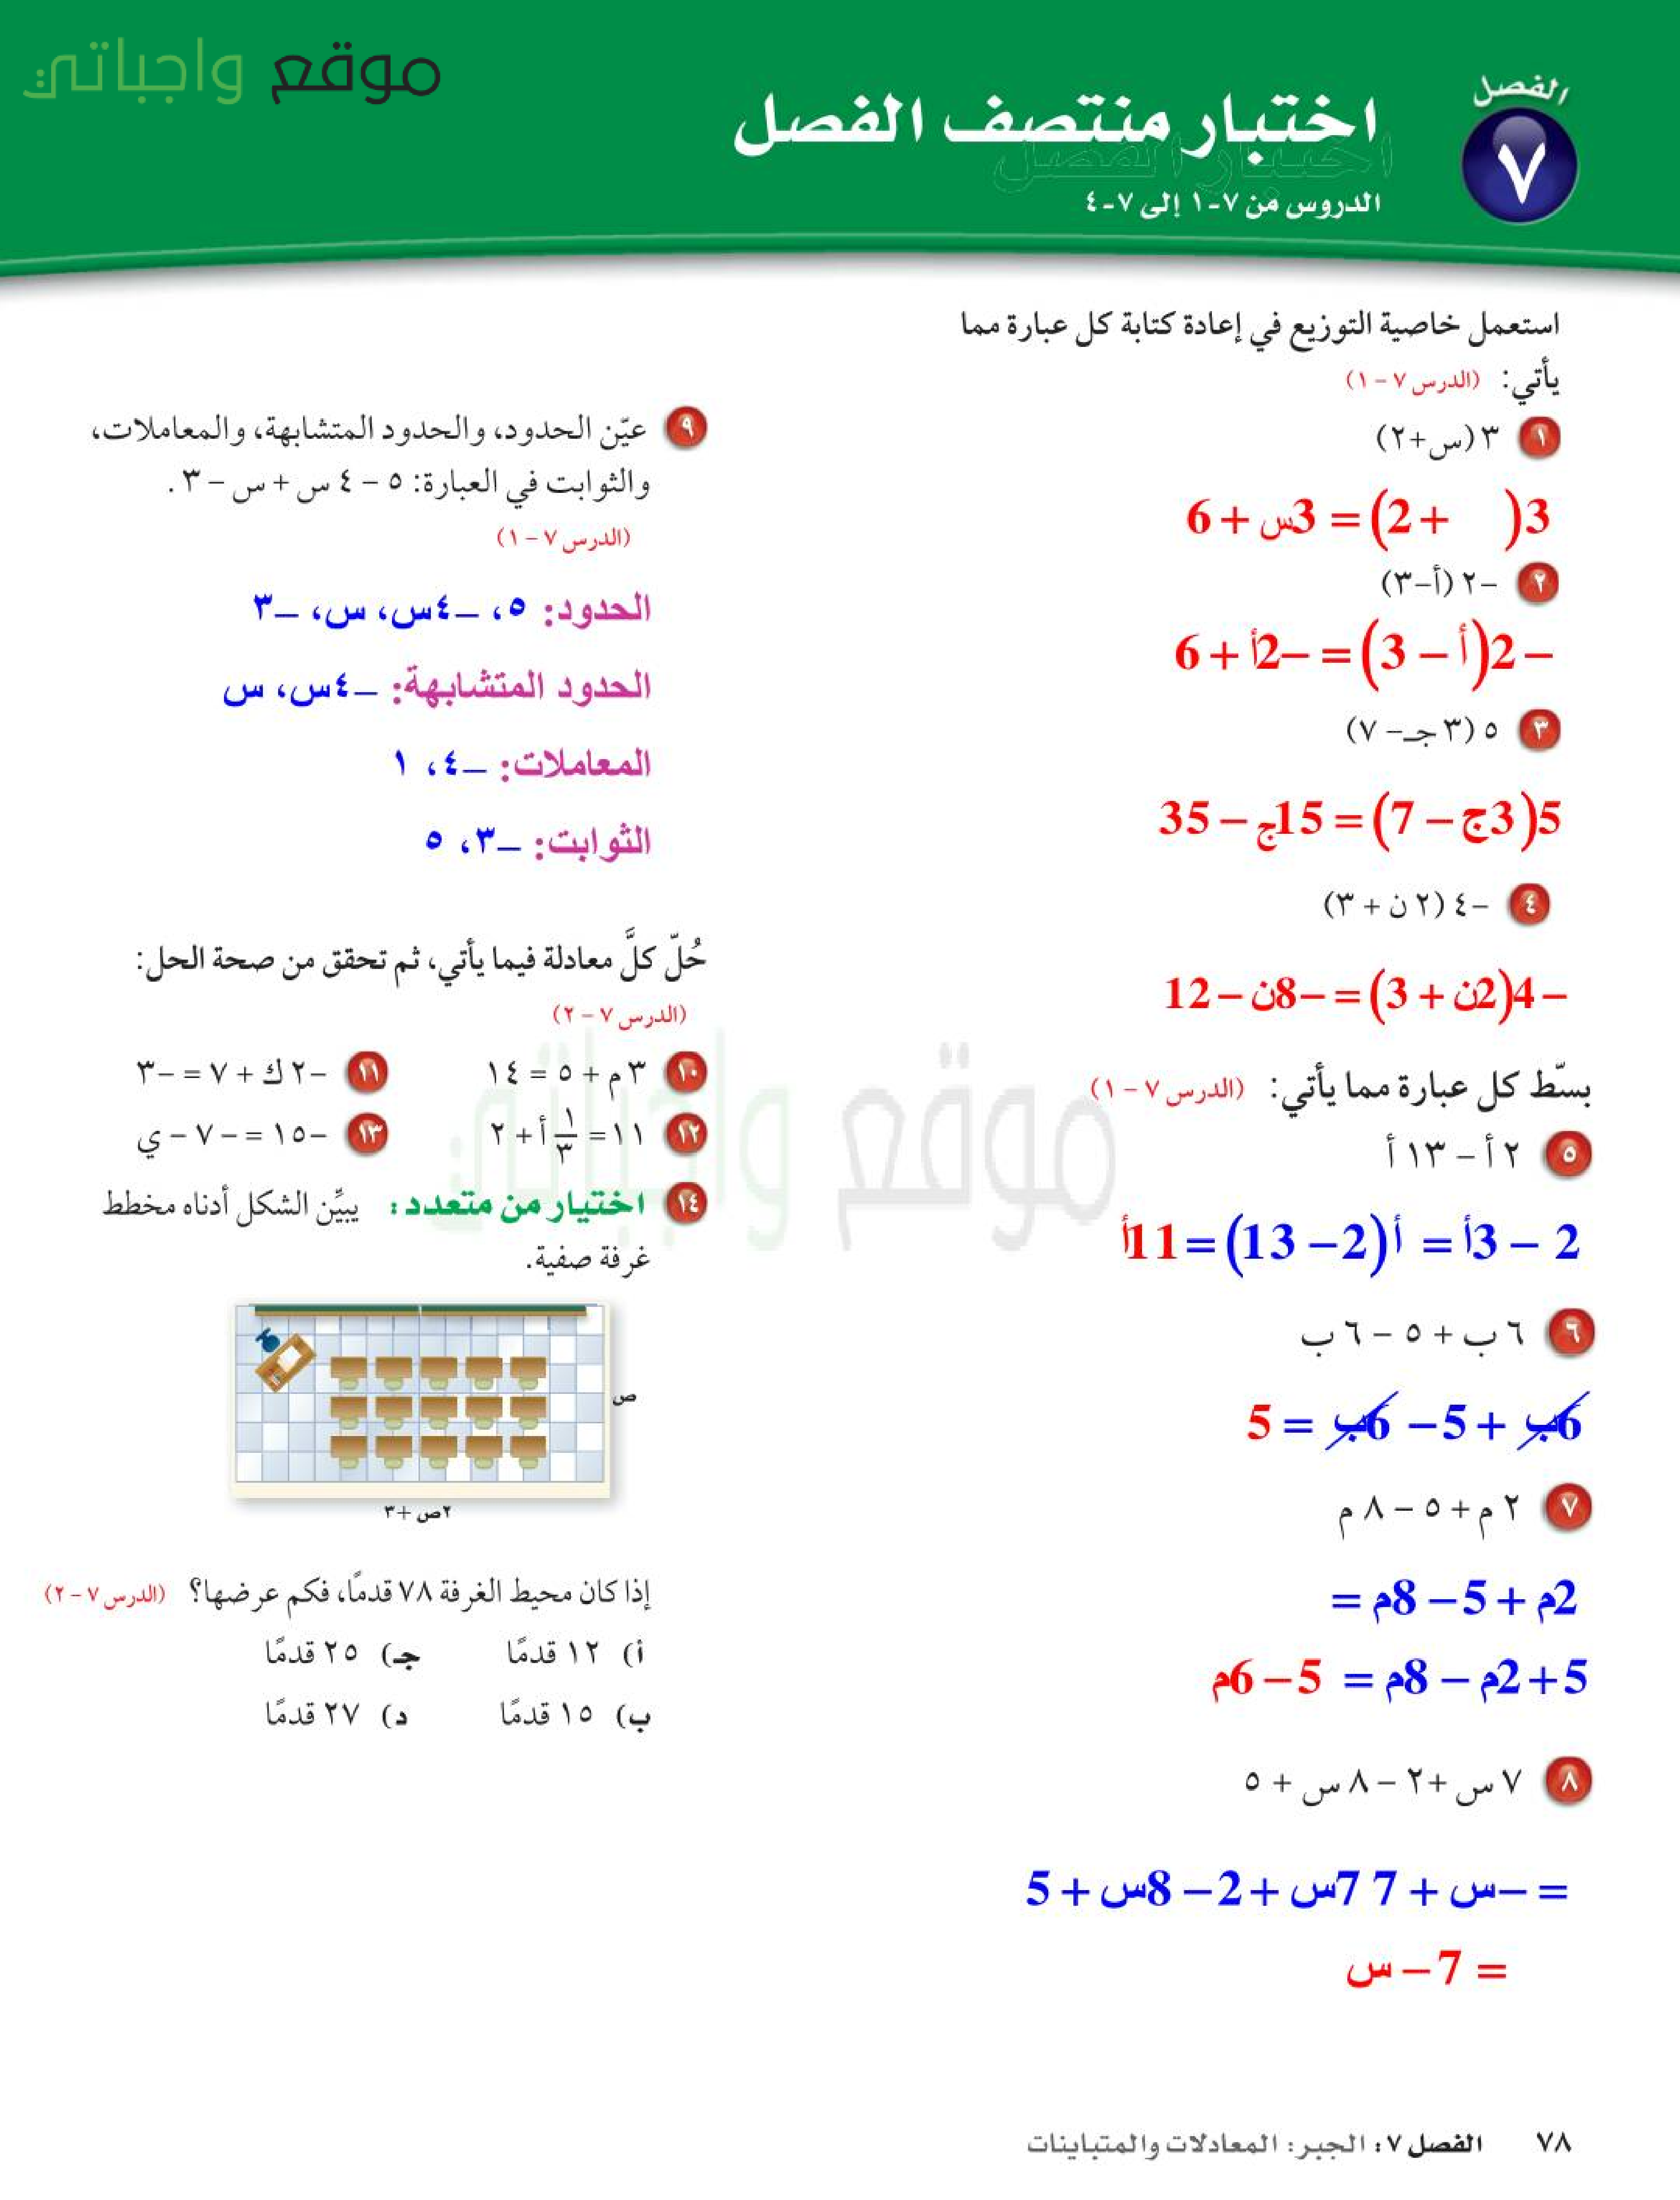 موقع واجباتي
الفصل
٧
اختبار منتصف الفصل
الدروس من ٧-١ إلى ٧-٤
استعمل خاصية التوزيع في إعادة كتابة كل عبارة مما
يأتي: (الدرس ٧ - ١)
١ ٣ (س+٢)
3( +2) = 3س + 6
٢ -٢ (أ-٣)
– 2(أ – 3) = –2أ + 6
٣ ٥ (٣ جـ - ٧)
5(3ج – 7) = 15ج – 35
٤ -٤ (٢ ن + ٣)
– 4(2ن + 3) = –8ن – 12
بسّط كل عبارة مما يأتي: (الدرس ٧ - ١)
٥ ٢ أ - ١٣ أ
2 – 3أ = أ(2 – 13) = 11أ
٦ ٦ ب + ٥ - ٦ ب
6ب + 5 – 6ب = 5
٧ ٢ م + ٥ - ٨ م
2م + 5 – 8م =
5 + 2م – 8م = 5 – 6م
٨ ٧ س + ٢ - ٨ س + ٥
= –س + 7 7س + 2 – 8س + 5
= 7 – س
٩ عيّن الحدود، والحدود المتشابهة، والمعاملات،
والثوابت في العبارة: ٥ - ٤ س + س - ٣ .
(الدرس ٧ - ١)
الحدود: ٥، –٤س، س، –٣
الحدود المتشابهة: –٤س، س
المعاملات: –٤، ١
الثوابت: –٣، ٥
حُلّ كلَّ معادلة فيما يأتي، ثم تحقق من صحة الحل:
(الدرس ٧ - ٢)
١٠ ٣ م + ٥ = ١٤ ١١ -٢ ك + ٧ = -٣
١٢ ١١ = ١/٣ أ + ٢ ١٣ -١٥ = -٧ - ي
١٤ اختيار من متعدد: يبيِّن الشكل أدناه مخطط
غرفة صفية.
ص
٢ص +٣
إذا كان محيط الغرفة ٧٨ قدمًا، فكم عرضها؟ (الدرس ٧ - ٢)
أ) ١٢ قدمًا جـ) ٢٥ قدمًا
ب) ١٥ قدمًا د) ٢٧ قدمًا
موقع واجباتي
٧٨ الفصل ٧: الجبر: المعادلات والمتباينات